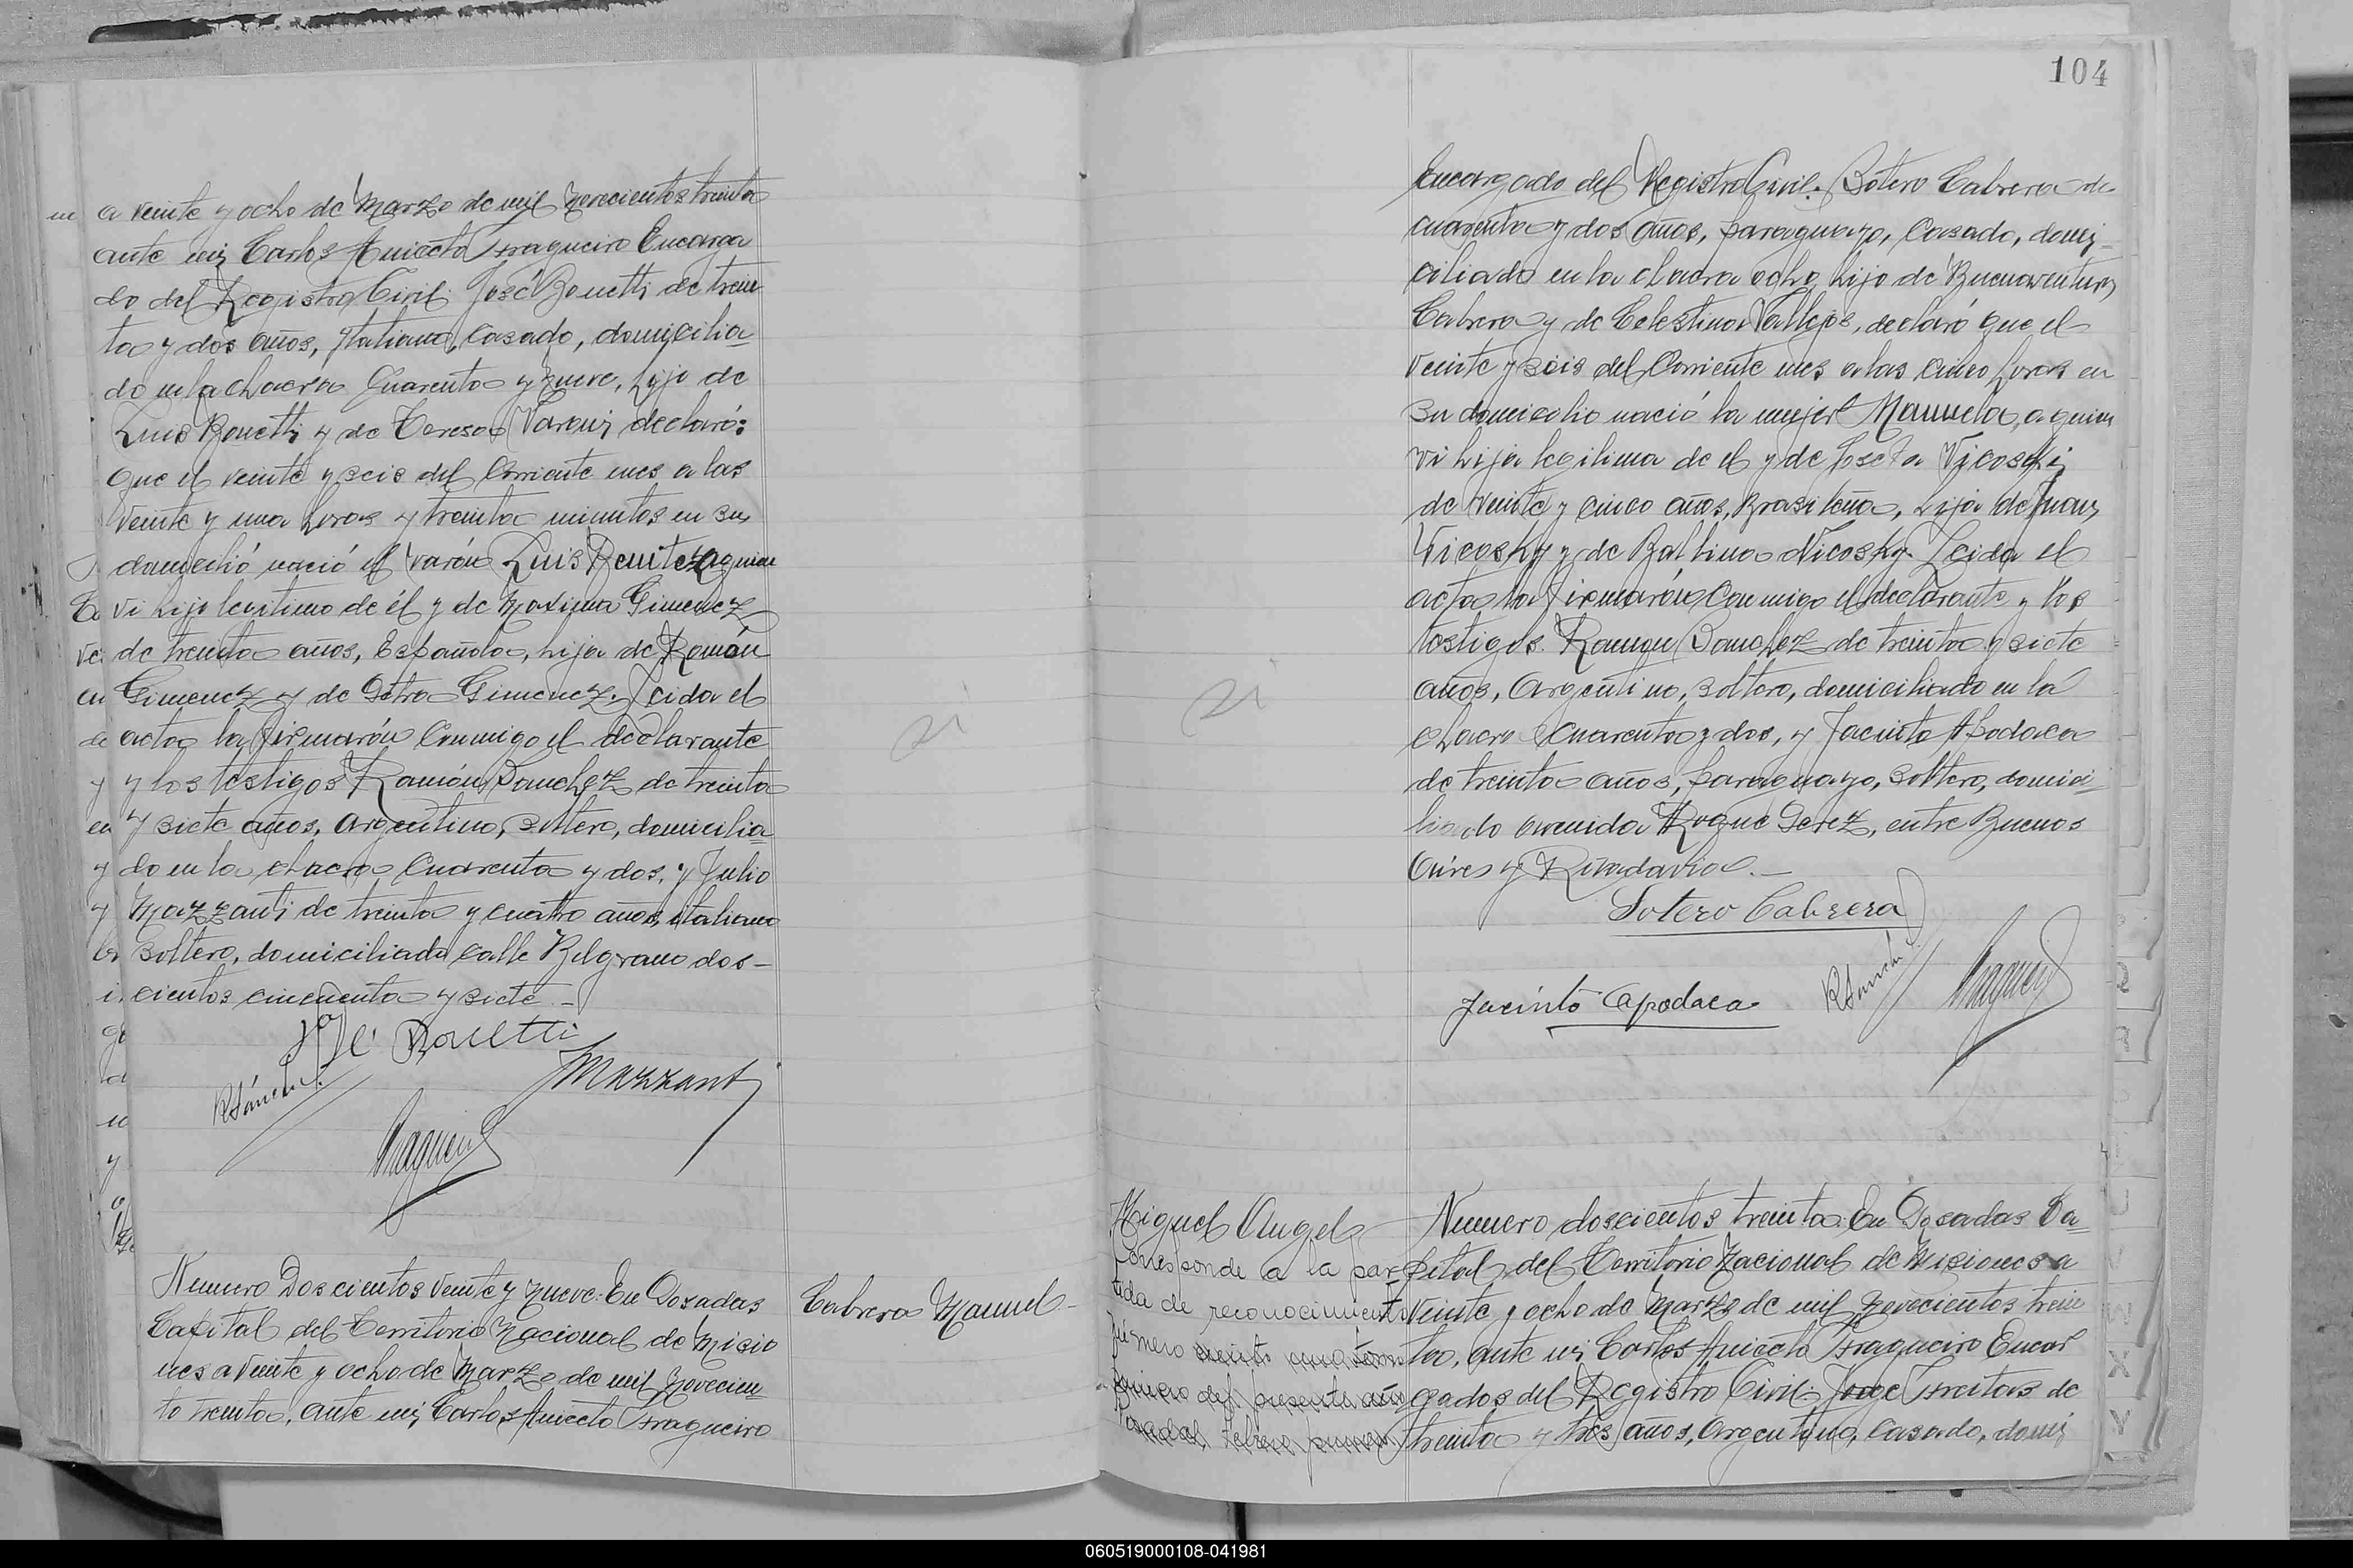 a veinte y ocho de Marzo de mil novecientos treinta
ante mi Carlos Aniceto Fragueiro Encarga
do del Registro Civil: José Bonetti de trein
ta y dos años, Italiano, casado, domicilia
do en la chacra Cuarenta y nueve, hijo de
Luis Bonetti y de Teresa declaró:
que el veinte y seis del corriente mes a las
veinte y una horas y treinta minutos en su
domicilió nació el varón Luis a quien
vi hijo legitimo de él y de Maxima Gimenez
de treinta años, Española, hija de Román
Gimenez y de Petra Gimenez. Leida el
acta la firmarón conmigo el declarante
y los testigos Ramón Sanchez de treinta
y siete años, argentino, soltero, domicilia
do en la chacra cuarenta y dos, y Julio
Mazzanti de treinta y cuatro años, italiano
soltero, domiciliado calle Belgrano dos-
cientos cincuenta y siete.-
José Bonetti
RSánchez
JMazzanti
Fragueiro
Numero Doscientos veinte y nueve: En Posadas
Capital del Territorio Nacional de Misio
nes a veinte y ocho de Marzo de mil novecien-
to treinta, ante mi Carlos Aniceto Fragueiro
Cabrera Manuel-
104
Encargado del Registro Civil: Sotero Cabrera de
cuarenta y dos años, paraguayo, casado, domi-
ciliado en la chacra ocho, hijo de Buenaventura
Cabrera y de Celestina Vallejos, declaró que el
veinte y seis del corriente mes a las cinco horas en
su domicilio nació la mujer Manuela, a quien
vi hija legitima de el y de Josefa Vicoski
de veinte y cinco años, Brasileña, hija de Juan
Vicosky y de Balbina Nicosky. Leida el
acta la firmarón conmigo el declarante y los
testigos. Ramon Sanchez de treinta y siete
años, argentino, soltero, domiciliado en la
chacra cuarenta y dos, y Jacinto Apodaca
de treinta años, paraguayo, soltero, domici
liado avenida Roque Perez, entre Buenos
Aires y Rivadavia.-
Sotero Cabrera
Jacinto Apodaca
RSánchez
Fragueiro
Miguel Angel
Corresponde a la par
tida de reconocimiento
número
primero del presente año
Numero doscientos treinta: En Posadas Ca-
pital del Territorio Nacional de Misiones a
veinte y ocho de Marzo de mil novecientos trein
ta, ante mi Carlos Aniceto Fragueiro Encar
gados del Registro Civil: Jorge Freitas de
treinta y tres años, Argentino, casado, domi
060519000108-041981